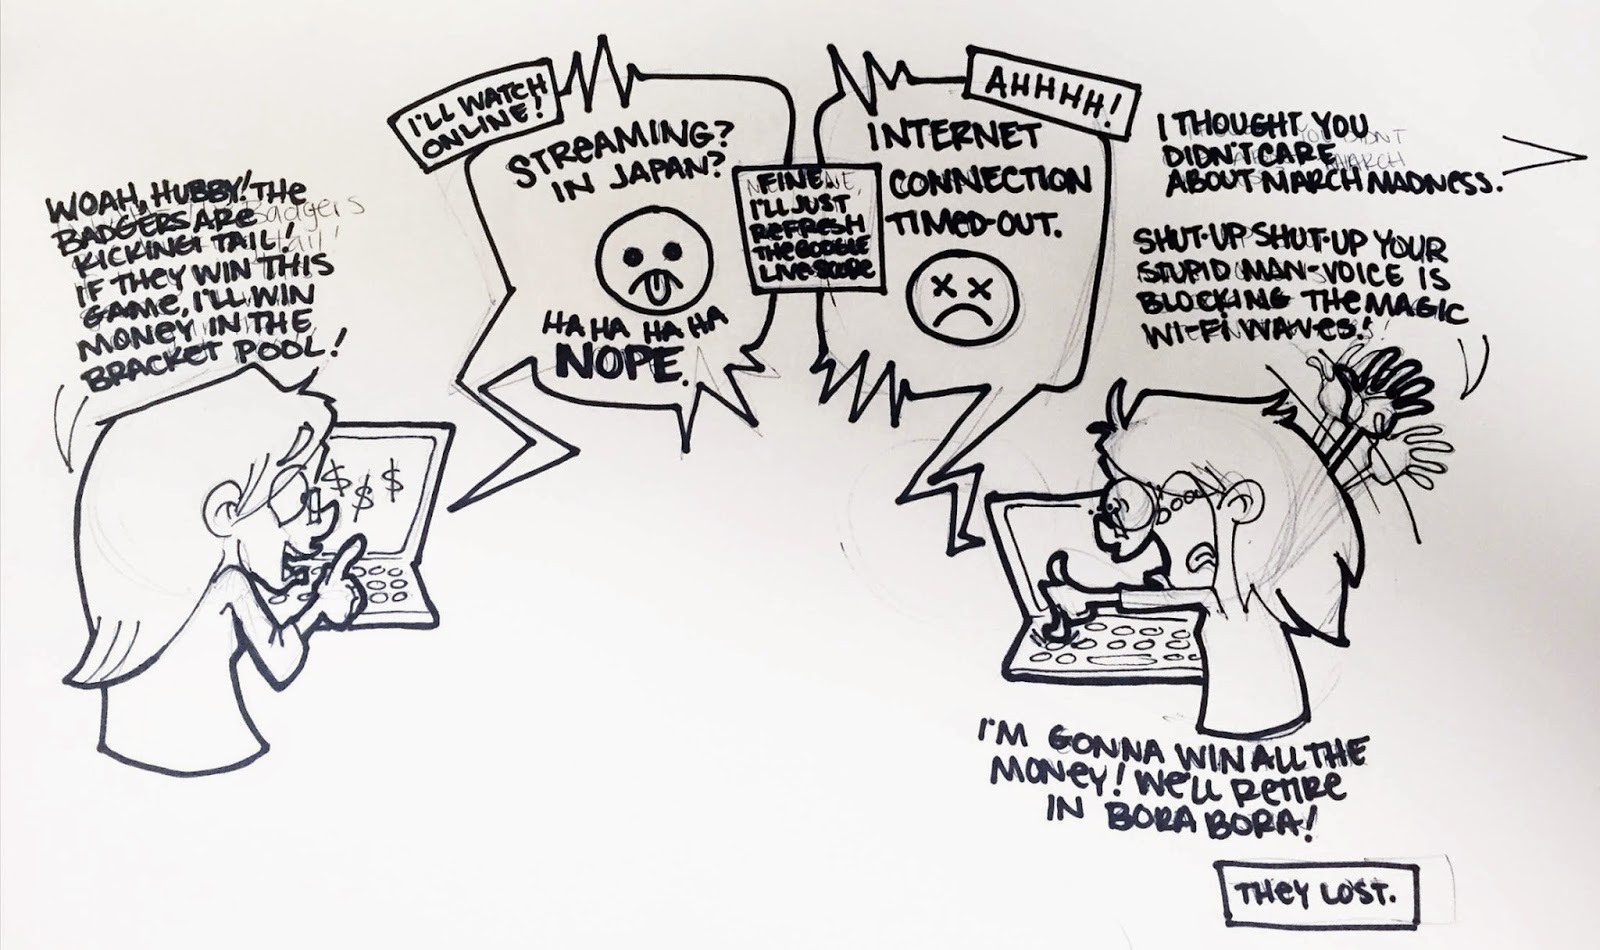 WOAH, HUBBY! THE
BADGERS ARE
KICKING TAIL!
IF THEY WIN THIS
GAME, I'LL WIN
MONEY IN THE
BRACKET POOL!
$ $ $
I'LL WATCH
ONLINE!
STREAMING?
IN JAPAN?
HA HA HA HA
NOPE.
FINE.
I'LL JUST
REFRESH
THE GOOGLE
LIVE-SCORE
AHHHH!
INTERNET
CONNECTION
TIMED-OUT.
I THOUGHT YOU
DIDN'T CARE
ABOUT MARCH MADNESS.
SHUT-UP SHUT-UP YOUR
STUPID MAN-VOICE IS
BLOCKING THE MAGIC
WI-FI WAVES!
I'M GONNA WIN ALL THE
MONEY! WE'LL RETIRE
IN BORA BORA!
THEY LOST.